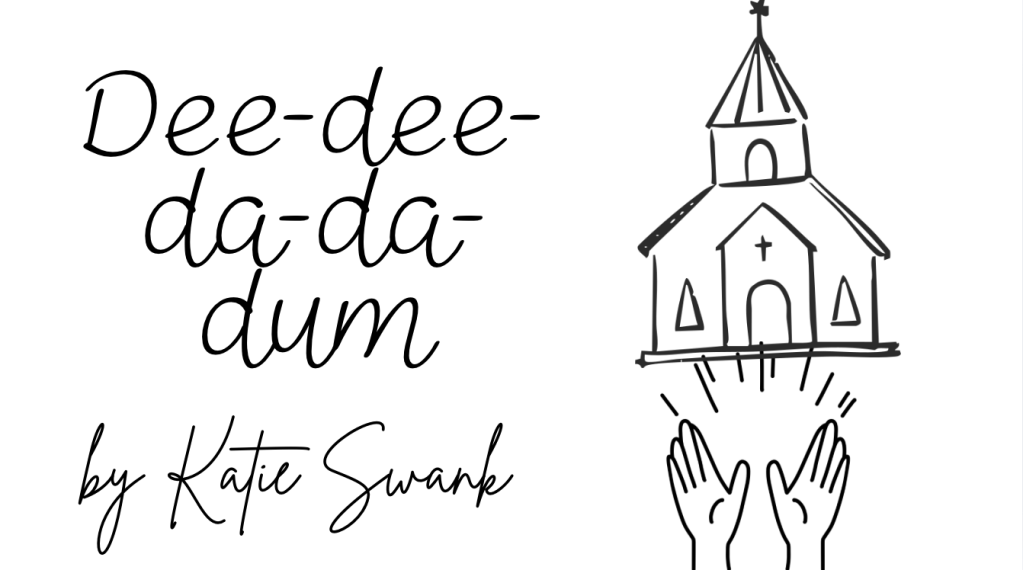 Dee-dee-
da-da-
dum
by Katie Swank